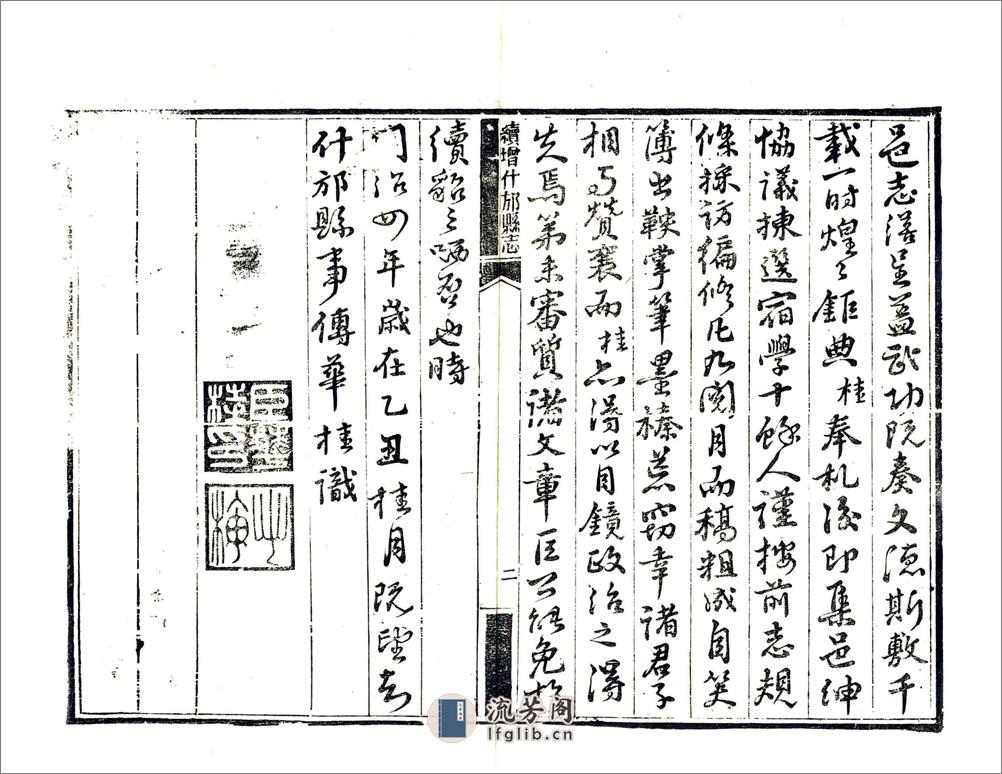 邑志落呈蓋武功既奏文德斯敷千
載一时煌々鉅典桂奉札後即集邑紳
協議揀選宿學十餘人謹按前志規
條採訪編修凡九閱月而稿粗成自笑
簿書鞅掌筆墨榛蕪竊幸諸君子
相与贊襄而桂亦得以目鏡政治之得
失焉第未審質諸文章巨公能免於
續貂之哂否也時
同治四年歲在乙丑桂月既望知
什邡縣事傅華桂識
續增什邡縣志
二
流芳阁
lfglib.cn